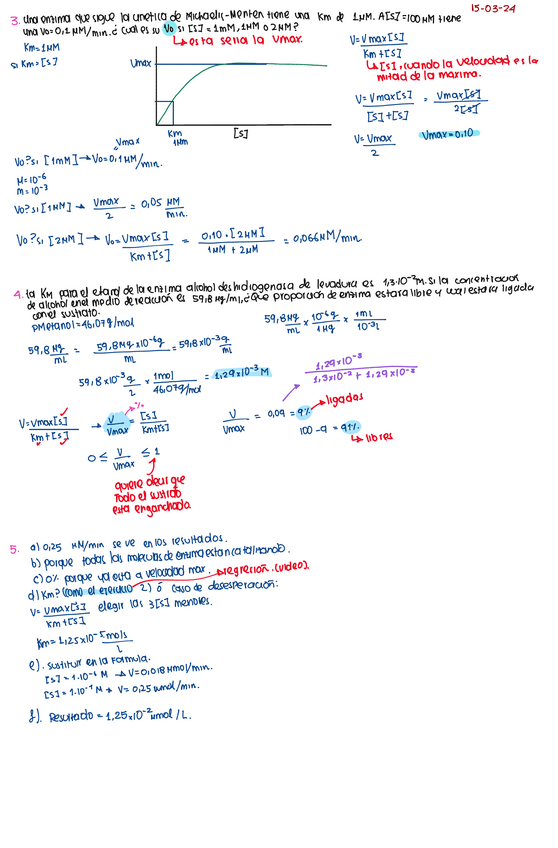 15-03-24
3. Una enzima que sigue la cinética de Michaelis-Menten tiene una Km de 1μM. A[S]=100μM tiene
una Vo=0,1 μM/min. ¿cual es su Vo si [S]=1mM, 1μM o 2μM?
↳ esta seria la Vmax.
Km=1μM
si Km=[S]
Vmax
Km
1μM
[S]
V=Vmax[S]
Km+[S]
↳[S], cuando la velocidad es la
mitad de la maxima.
V=Vmax[S] = Vmax[S]
[S]+[S] 2[S]
V=Vmax
2
Vmax=0,10
Vmax
Vo? si [1mM] → Vo=0,1μM/min.
M=10⁻⁶
m=10⁻³
Vo? si [1μM] → Vmax = 0,05 μM
2 min.
Vo? si [2μM] → Vo=Vmax[S] = 0,10·[2μM] = 0,066μM/min
Km+[S] 1μM + 2μM
4. La Km para el etanol de la enzima alcohol deshidrogenasa de levadura es 1,3·10⁻²M. Si la concentracion
de alcohol en el medio de reacción es 59,8μg/ml, ¿Que proporcion de enzima estara libre y cual estara ligada
con el sustrato.
PMetanol=46,07g/mol
59,8μg × 10⁻⁶g × 1mL
mL 1μg 10⁻³L
59,8μg = 59,8μg×10⁻⁶g = 59,8×10⁻³g
mL mL mL
59,8×10⁻³g × 1mol = 1,29×10⁻³M
46,07g/mol
1,29×10⁻³
1,3×10⁻² + 1,29×10⁻²
V=Vmax[S] → V = [S]
Km+[S] Vmax Km+[S]
%
V = 0,09 = 9%
Vmax
ligadas
100-9% = 91%
↳ libres
0 ≤ V ≤ 1
Vmax
quiere decir que
todo el sustrato
esta enganchado.
5. a) 0,25 μM/min se ve en los resultados.
b) porque todas las moleculas de enzima estan catalizando.
c) 0% porque ya esta a velocidad max.
d) Km? (como el ejercicio 2) ó caso de desesperación:
→ regresion. (video).
V=Vmax[S] elegir las 3[S] menores.
Km+[S]
Km=1,25×10⁻⁵ mols
L
e). Sustituir en la formula.
[S]=1·10⁻⁶ M → V=0,018μmol/min.
[S]=1·10⁻¹ M → V=0,25 μmol/min.
f). Resultado = 1,25×10⁻² μmol/L.